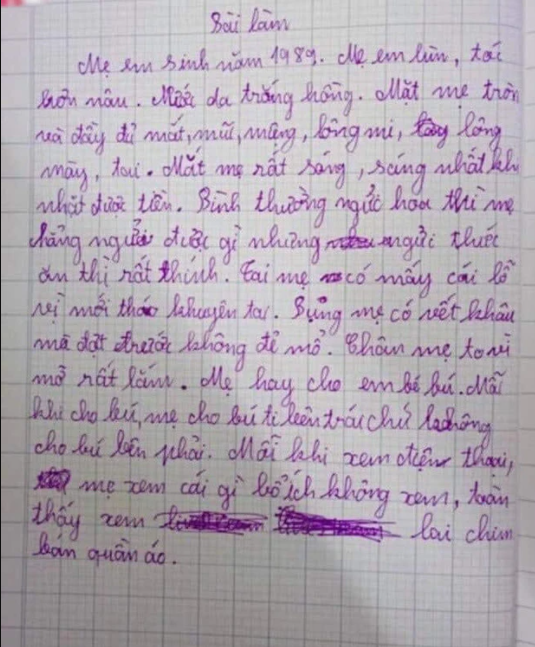 Bài làm
Mẹ em sinh năm 1989. Mẹ em lùn, tóc
buôn nâu. Nước da trắng hồng. Mặt mẹ tròn
và đầy đủ mắt, mũi, miệng, lông mi, lông
mày, tai. Mắt mẹ rất sáng, sáng nhất khi
nhặt được tiền. Bình thường ngửi hoa thì mẹ
chẳng ngửi được gì nhưng ngửi thức
ăn thì rất thính. Tai mẹ có mấy cái lỗ
vì mới tháo khuyên tai. Bụng mẹ có vết khâu
mà đợt trước không đẻ mổ. Chân mẹ to vì
mỡ rất lắm. Mẹ hay cho em bé bú. Mỗi
khi cho bú, mẹ cho bú ti bên trái chứ không
cho bú bên phải. Mỗi khi xem điện thoại,
mẹ xem cái gì bổ ích không xem, toàn
thấy xem lai chim
bán quần áo.